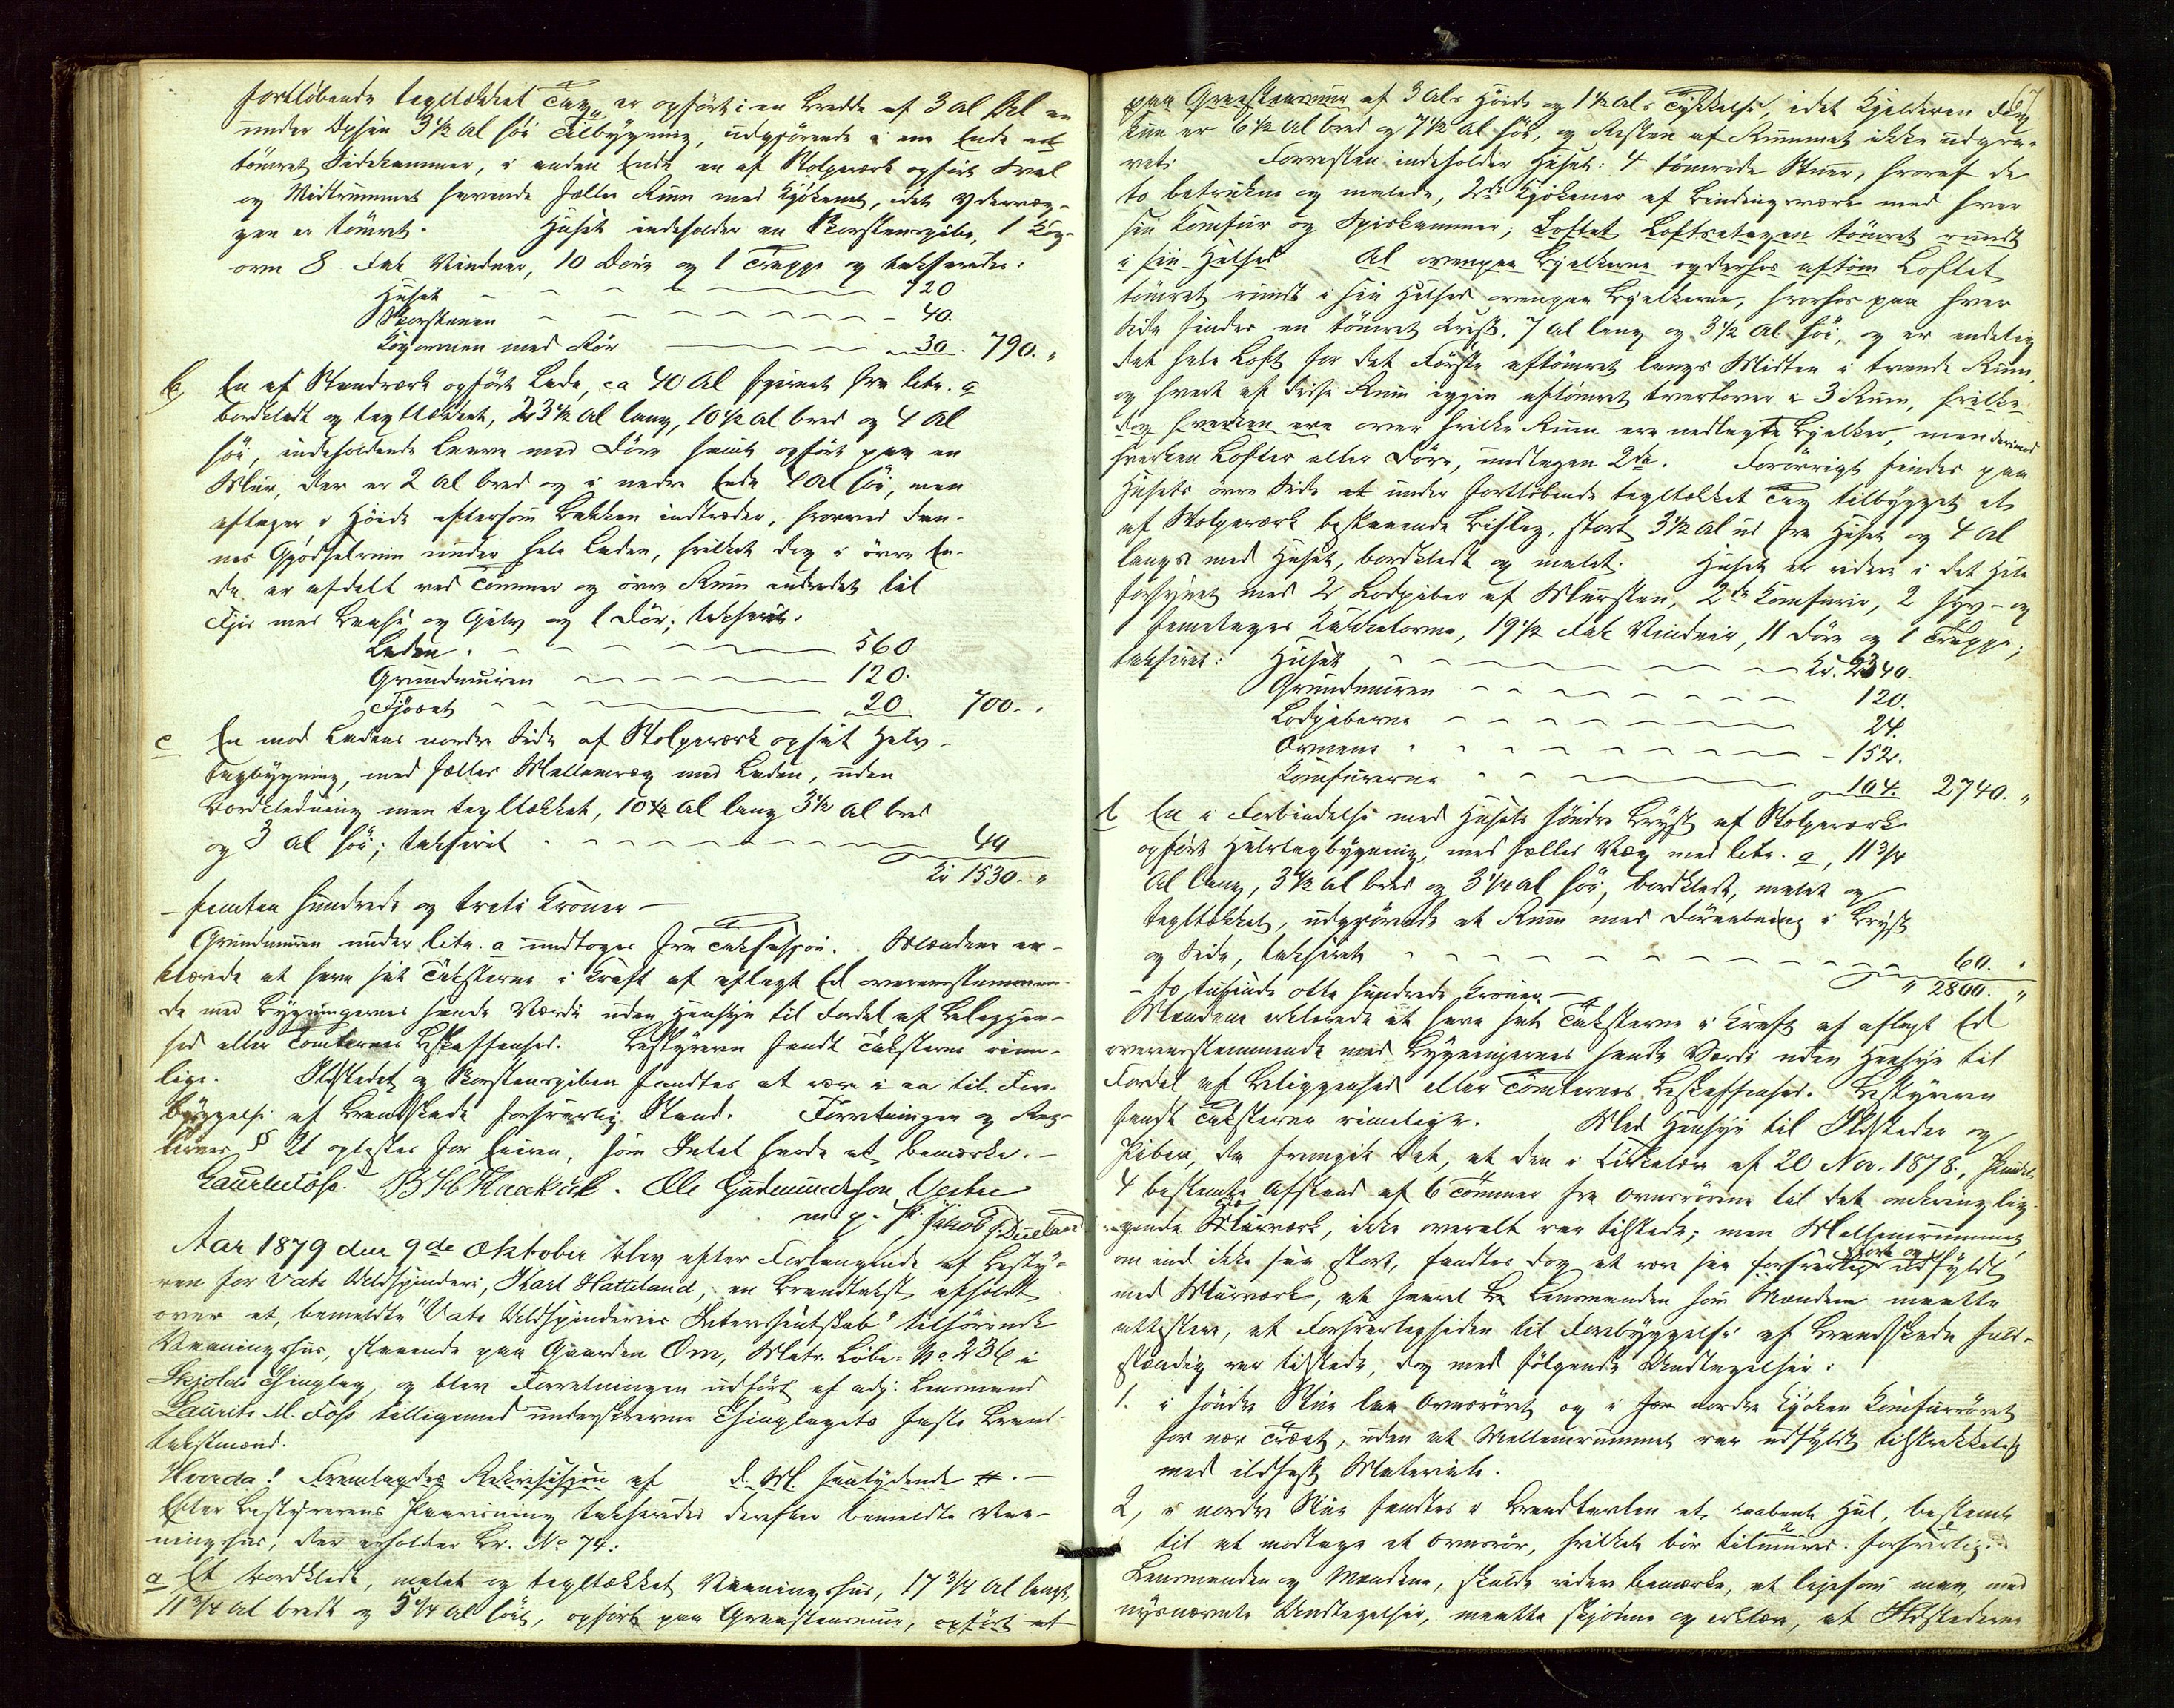 fortløbende tegltækket Tag er opført i en Bredde af 3 Al Al en
under Opsyn 3 1/2 Al høi Tilbygning, udgjørende i ene Ende et
tømret Sidekammer, i anden Ende en af Stolpeværk opført Sval
og Midtrummet havende fælles Rum med Kjøkenet, idet Ydervæg-
gen er tømret. Huset indeholder en Skorstenspibe, 1 Kog-
ovn 8 Fak Vinduer, 10 Døre og 1 Trappe og takseredes:
Huset 720
Skorstenen 40.
Kogovnen med Rør 30. 790. "
b, En af Standværk opført Lade, ca 40 Al fjernet fra litr. a
bordklædt og tegltækket, 23 1/2 Al lang, 10 1/2 Al bred og 4 Al
høi, indeholdende Laave med Døre samt opført paa en
Mur, der er 2 Al bred og i nedre Ende 4 Al høi, men
aftager i Høide eftersom Bakken indtræder, hvorved dan-
nes Gjødselrum under hele Laden, hvilket dog i øvre En-
de er afdelt ved Tømmer og øvre Rum indredet til
Fjøs med Baase og Gulv og 1 Dør; takseret:
Laden. 560
Grundmuren 120.
Fjøset 20 700. "
c En mod Ladens nordre Side af Stolpeværk opført Halv-
tagbygning, med fælles Mellemvæg med Laden, uden
Bordklædning men tegltækket, 10 1/2 Al lang 3 1/2 Al bred
og 3 Al høi; takseret 40
Kr 1530. "
- femten hundrede og treti Kroner -
Grundmuren under litr. a undtoges fra Taksasjon. Mændene er-
klærede at have sat Taksterne i Kraft af aflagt Ed overensstemmen-
de med Bygningernes sande Værdi uden Hensyn til Fordel af Beliggen-
hed eller Tomternes Beskaffenhed. Bestyreren fandt Taksterne rime-
lige. Ildstedet og Skorstenspiben fandtes at være i en til Fore-
byggelse af Brandskade forsvarlig Stand. Forretningen og Reg-
lernes § 21 oplæstes for Eieren, som Intet havde at bemærke. -
Lauritz Foss. B H Haakuk. Ole Gudmundsen Vestre
m. p. P. Jakob T. Dueland
Aar 1879 den 9de Oktober blev efter Forlangende af Besty-
ren for Vats Uldspinderi, Karl Hatteland, en Brandtakst afholdt
over et, bemeldte "Vats Uldspinderies Interessentskab" tilhørende
Vaaningshus, staaende paa Gaarden Om, Matr. Løbe-No 236 i
Skjolds Thinglag, og blev Forretningen udført af adj. Lensmand
Laurits M. Foss tilligemed underskrevne Thinglagets faste Brand-
takstmænd.
Hvorda! Fremlagdes Rekvisisjon af d. M. saalydende #. -
Efter Bestyrerens Paavisning takseredes derefter bemeldte Vaa-
ningshus, der erholder Br. No 74:
a Et bordklædt, malet og tegltækket Vaaningshus, 17 3/4 Al langt,
11 3/4 Al bredt og 5 1/4 Al høit, opført paa Graastensmur, opført af
67
paa Graastensmur af 3 Als Høide og 1 1/2 Als Tykkelse, idet Kjelderen dog
kun er 6 1/2 Al bred og 7 1/2 Al høi, og Resten af Rummet ikke udgra-
vet. Forresten indeholder Huset: 4 tømrede Stuer, hvoraf de
to betrukne og malede, 2de Kjøkener af Bindingsværk med hver
sin Komfur og Spiskammer; Loftet Loftsetagen tømret rundt
i sin Helhed Al ovenpaa Bjelkerne og derhos aftøm Loftet
tømret rundt i sin Helhed ovenpaa Bjelkerne, hvorhos paa hver
Side findes en tømret Kvist, 7 Al lang og 3 1/2 Al høi, og er endelig
det hele Loft for det Første aftømret langs Midten i tvende Rum,
og hvert af disse Rum igjen aftømret tverkover i 3 Rum, hvilke
dog hverken ere over hvilke Rum ere nedlagte Bjelker, men derimod
hverken Lofter eller Døre, undtagen 2de. Forøvrigt findes paa
Husets øvre Side et under fortløbende tegltækket Tag tilbygget et
af Stolpeværk bestaaende Bislag, stort 3 1/2 Al ud fra Huset og 4 Al
langs med Huset, bordklædt og malet. Huset er videre i det Hele
forsynet med 2 Lodpiber af Mursten, 2de Komfurer, 2 syv- og
femetages Kakkelovne, 19 1/2 Fak Vinduer, 11 Døre og 1 Trappe;
takseret: Huset Kr. 2340.
Grundmuren 120.
Lodpiberne 24.
Ovnene 152.
Komfurerne 104. 2740. "
b En i Forbindelse med Husets søndre Bryst af Stolpeværk
opført Halvtagbygning, med fælles Væg med litr. a, 11 3/4
Al lang, 3 1/2 Al bred og 3 1/4 Al høi, bordklædt, malet og
tegltækket, udgjørende et Rum med Døraabning i Bryst
og Side, takseret 60. "
- to tusinde otte hundrede Kroner - " 2800. "
Mændene erklærede at have sat Taksterne i Kraft af aflagt Ed
overensstemmende med Bygningernes sande Værdi uden Hensyn til
Fordel af Beliggenhed eller Tomternes Beskaffenhed. Bestyreren
fandt Taksterne rimelige. Med Hensyn til Ildsteder og
Piber, da fremgik det, at den i Cirkulær af 20 Nov. 1878, Punkt
4 bestemte Afstand af 6 Tommer fra Ovnsrørene til det omkring lig-
gende Murværk, ikke overalt var tilstede; men Mellemrummet,
om end ikke saa stort, fandtes dog at være saa forsvarlig udfyldt
med Murværk, at saavel Lensmanden som Mændene maatte
attestere, at Forsvarligheden til Forebyggelse af Brandskade fuld-
stændig var tilstede, dog med følgende Undtagelser:
1. i søndre Stue laa Ovnsrøret og i nordre Kjøken Komfurrøret
for nær Træet, uden at Mellemrummet var udfyldt tilstrækkelig
med ildfast Materiale.
2, i nordre Stue fandtes i Brandtavlen et aabent Hul, bestemt
til at modtage et Ovnsrør, hvilket bør tilmures forsvarlig.
Lensmanden og Mændene, skulde videre bemærke, at ligesom man, med
nysnævnte Undtagelser, maatte skjønne og erklære, at Ildstederne